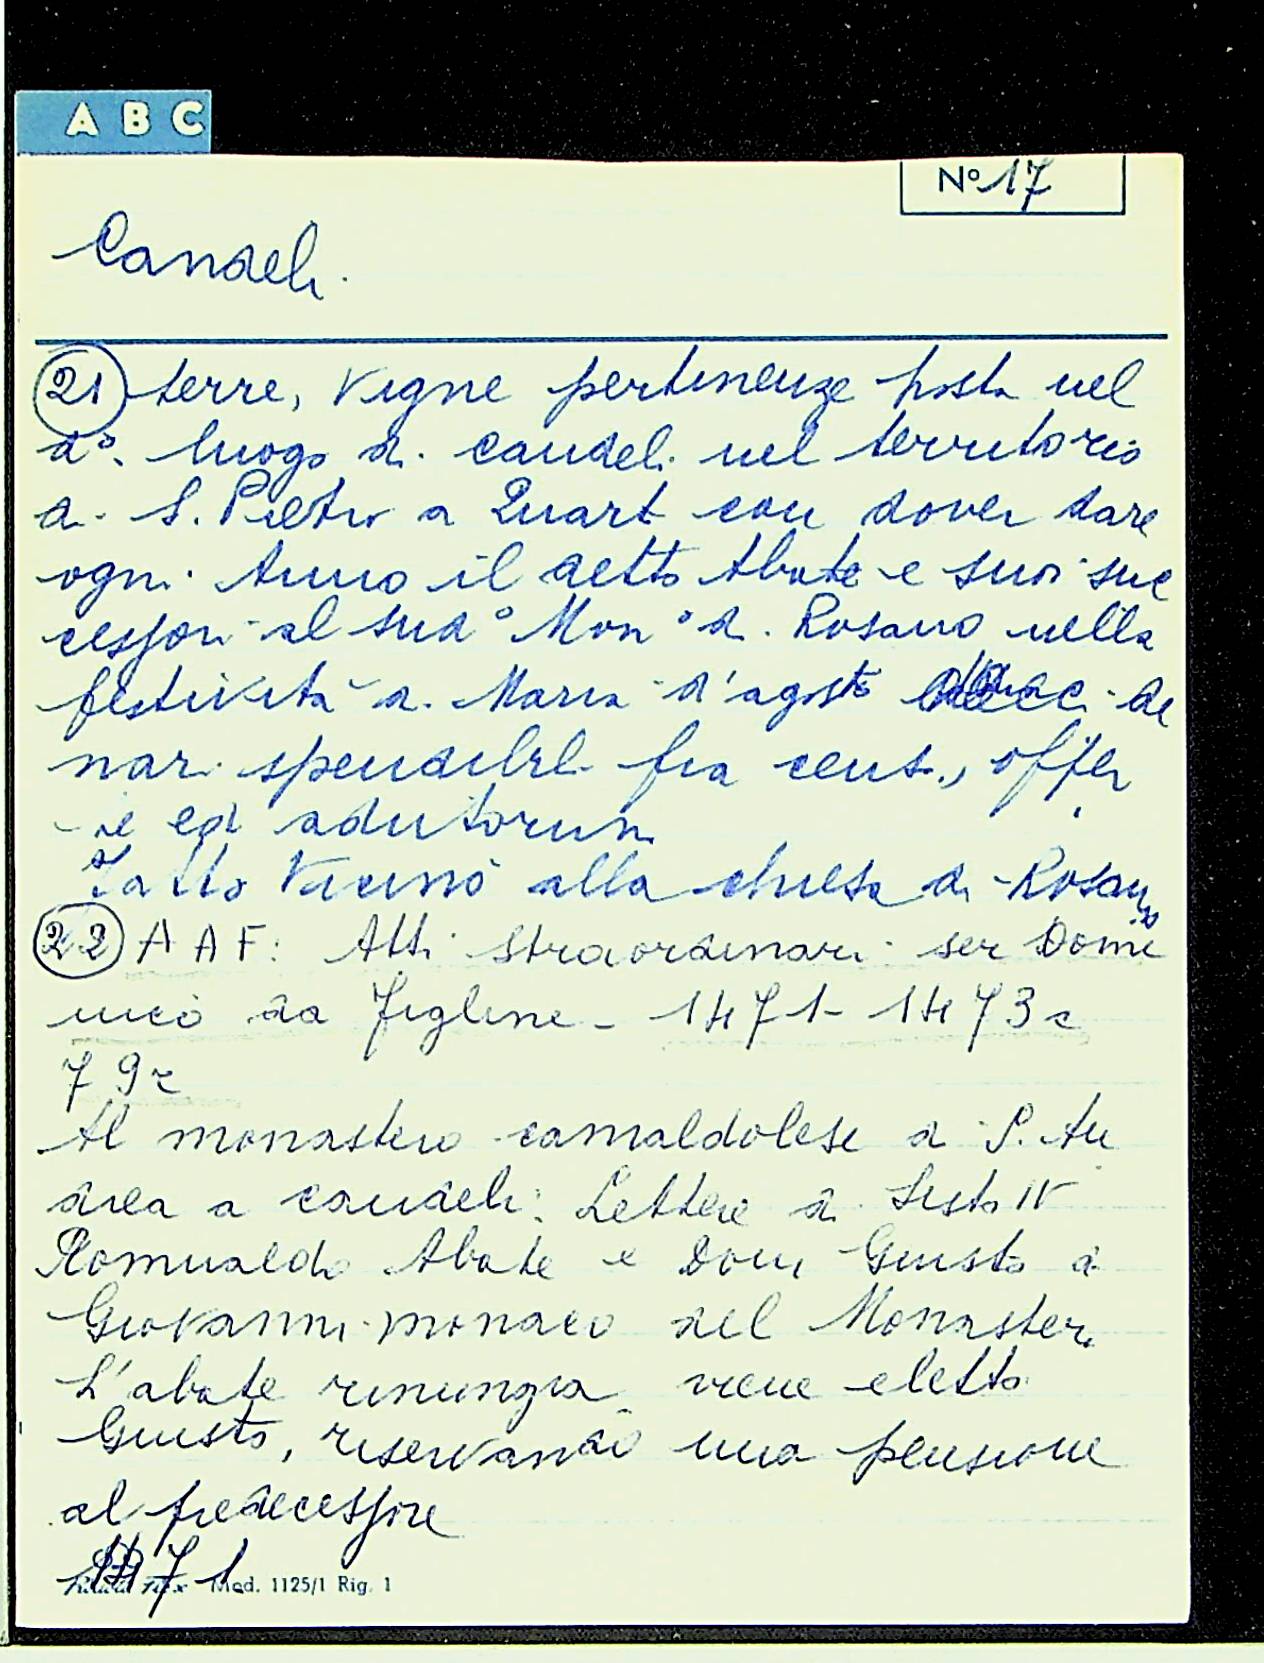 A B C
Nº 17
Candeli.
(21) terre, vigne pertinenze posta nel
dº. luogo di Candeli nel territorio
di S. Pietro a Quart con dover dare
ogni Anno il detto Abate e suoi suc
cessori al sudº Monº di Rosano nella
festività di Maria d'agosto de
nari spendibili fra cens., offer
ie ed adiutorium
Fatto vicino alla chiesa di Rosano
(22) A A F: Atti straordinari ser Dome
nico da Figline - 1471-1473 c
79r
Al monastero camaldolese di S. An
drea a Candeli: Lettere di Sisto IV
Romualdo Abate e Dom Giusto di
Giovanni monaco del Monastero
L'abate rinunzia viene eletto
Giusto, riservando una pensione
al predecessore
1471
Mod. 1125/1 Rig. 1